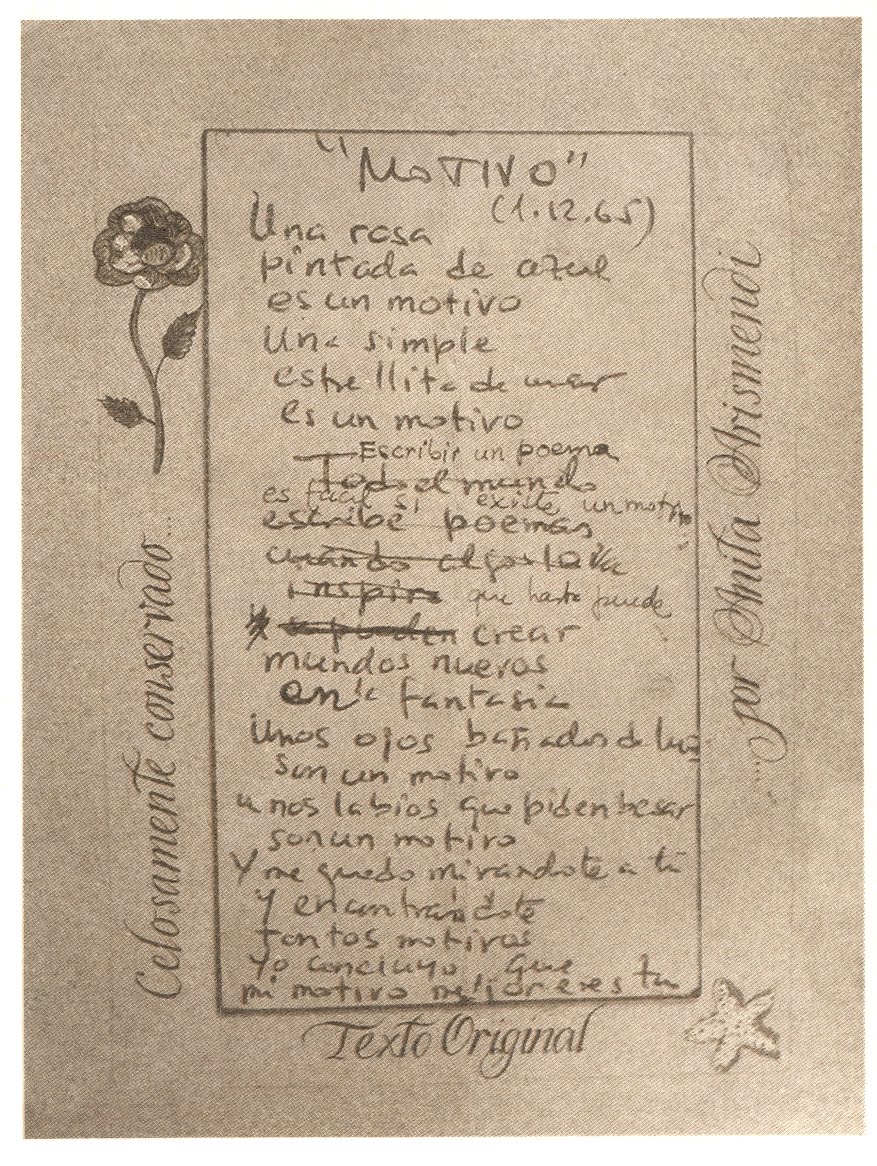 "MOTIVO"
(1.12.65)
Una rosa
pintada de azul
es un motivo
Una simple
estrellita de mar
es un motivo
Escribir un poema
Todo el mundo
es fácil si existe un motivo
escribe poemas
cuando algo le
inspira que hasta puede
crear
mundos nuevos
en la fantasia
Unos ojos bañados de luz
son un motivo
unos labios que piden besar
son un motivo
Y me quedo mirandote a tí
y encontrándote
tantos motivos
Yo concluyo que
mi motivo mejor eres tu
Celosamente conservado...
...por Anita Arismendi
Texto Original